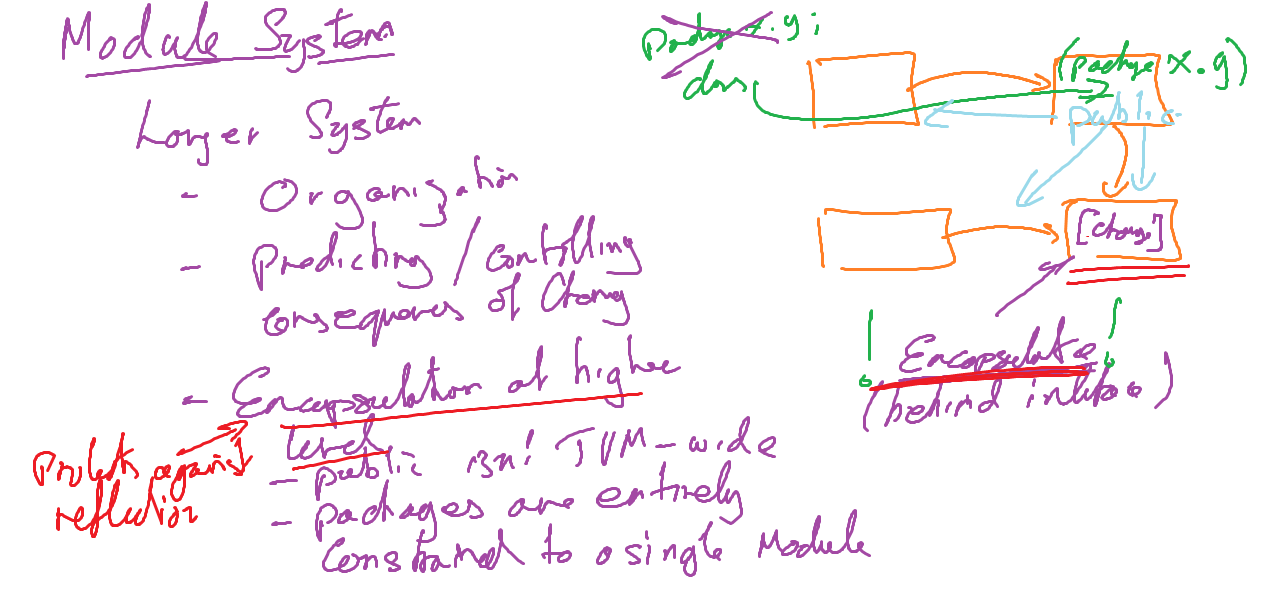 Module System
Larger System
- Organization
- Predicting / Controlling
consequences of Change
- Encapsulation at higher
level
- public isn't JVM-wide
- packages are entirely
constrained to a single Module
Protects against
reflection
package x.y;
(package x.y)
public
[change]
! Encapsulate !
(behind interface)